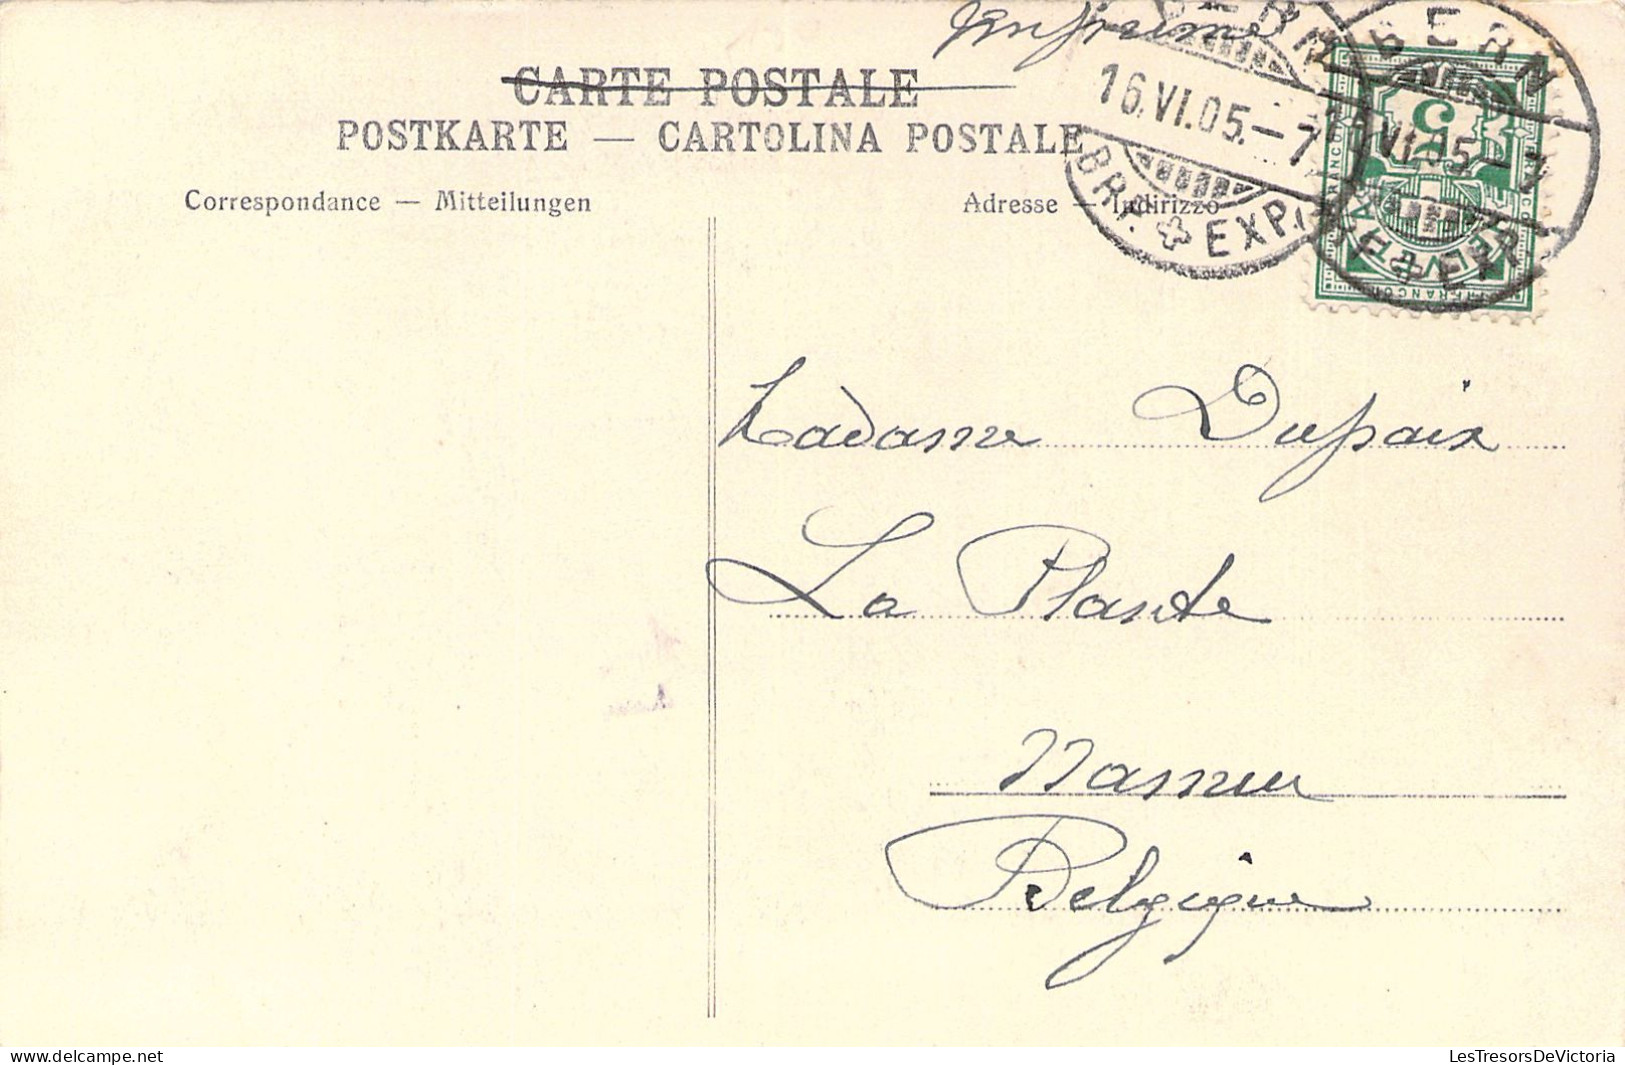 CARTE POSTALE
POSTKARTE — CARTOLINA POSTALE
Correspondance — Mitteilungen
Adresse — Indirizzo
BERN
16.VI.05.-7
BRF. EXP.
BERN
VI.05-7
HELVETIA
FRANCO
Madame Dupaix
La Plante
Namur
Belgique
LesTresorsDeVictoria
www.delcampe.net